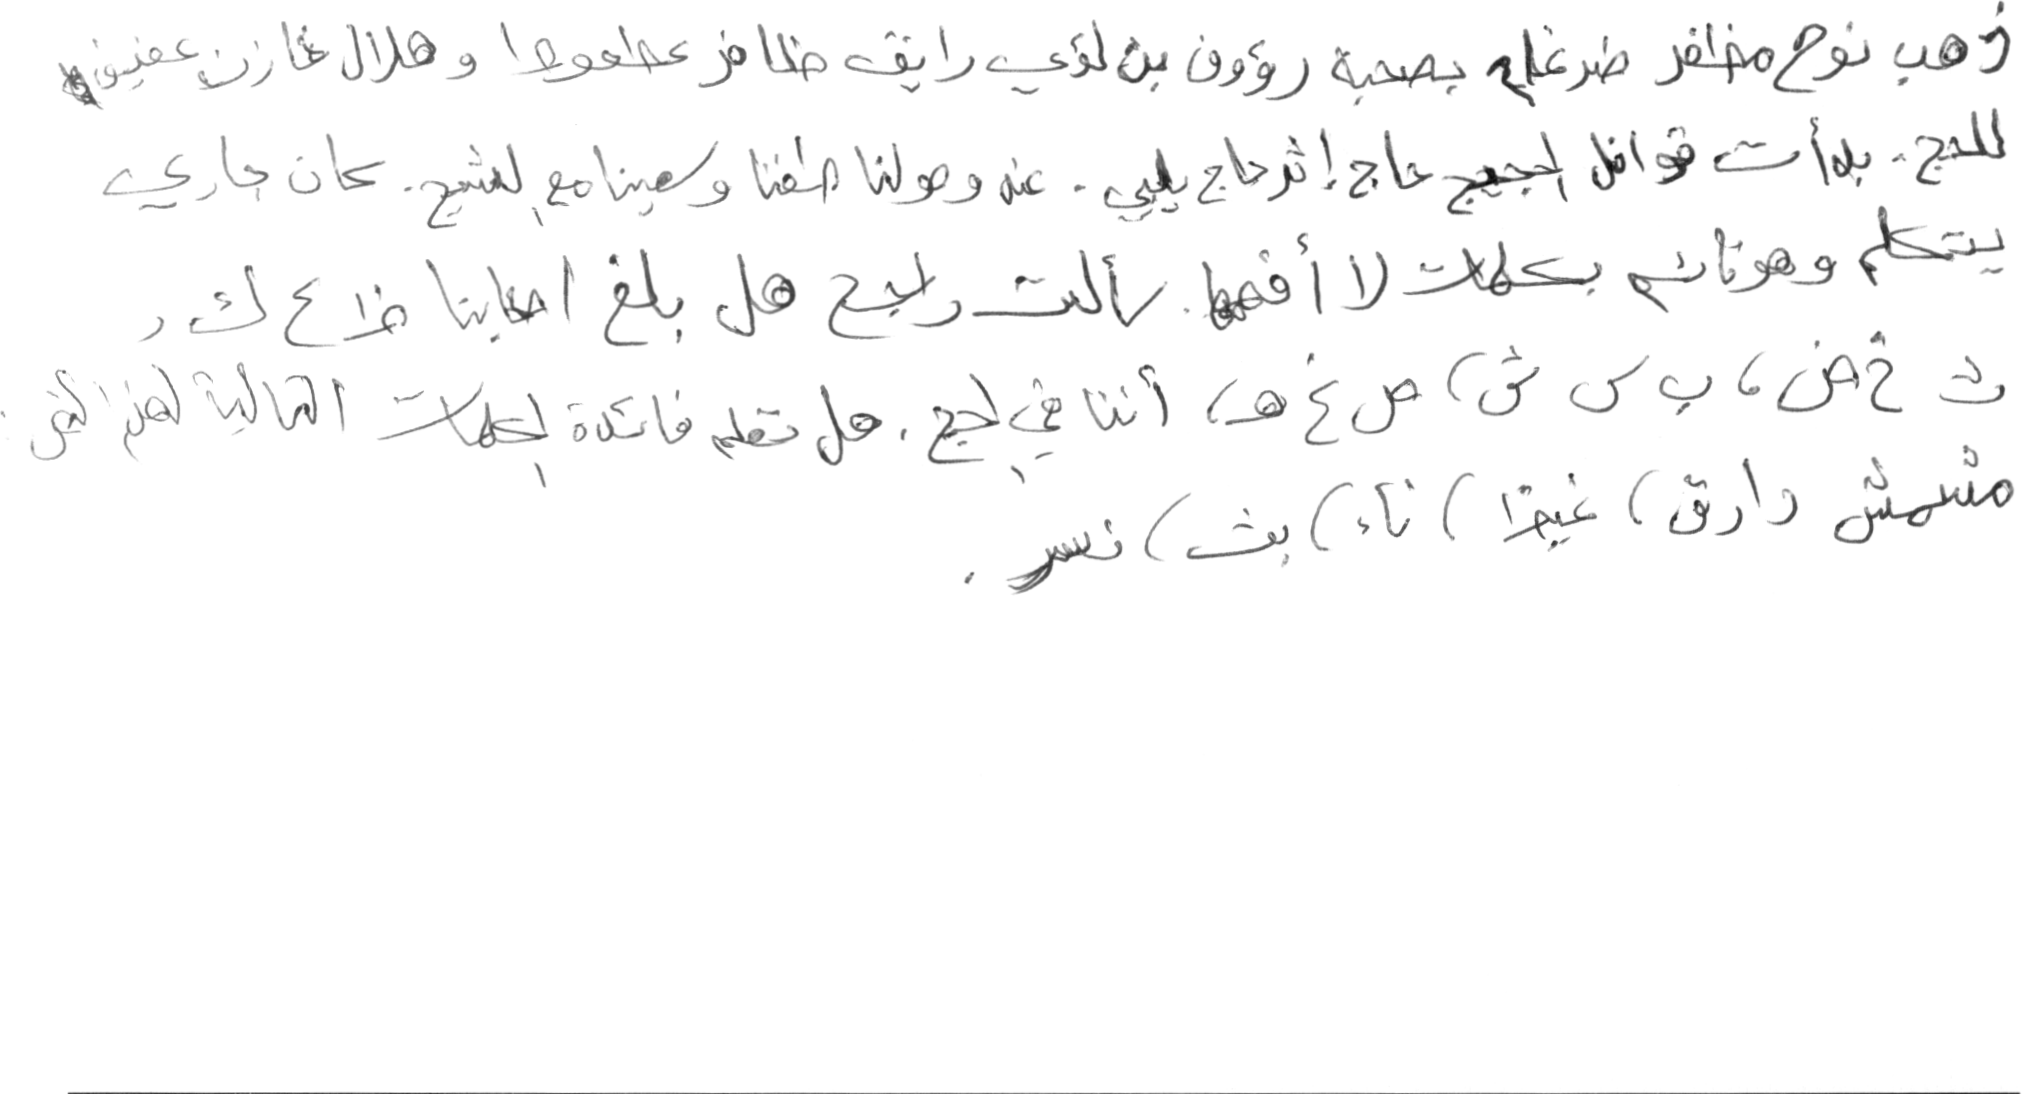 ذهب نوح مظفر ضرغام بصحبة رؤوف بن لؤي رايق ظافر عطعوط وهلال غازن عفيفي
للحج. بدأت قوافل الحجيج حاج إثر حاج يلبي. عند وصولنا طفنا وسعينا مع الشيخ. كان جاري
يتكلم وهو نائم بكلمات لا أفهمها. سألت راجح هل بلغ اصحابنا
ث خ ض، ب س ش، ص غ هـ، أننا في الحج. هل تعلم فائدة الكلمات التالية لهذا النص:
مشمش دارق، غيظ، ناء، بث، نسر.